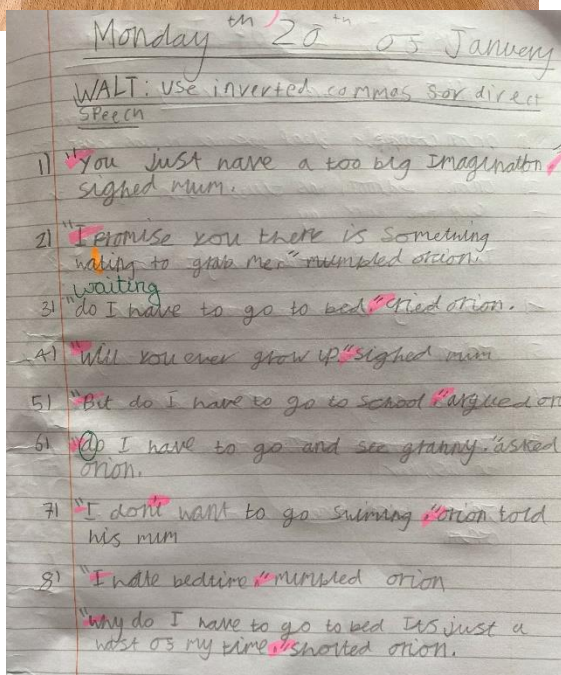 Monday th 20 th oj January
WALT: use inverted commas sor direct
speech
1) "You just have a too big Imagination,"
sighed mum.
2) "I promise you there is something
wating to grab me." mumbled orion.
waiting
3) "do I have to go to bed," cried orion.
4) "Will you ever grow up" sighed mum
5) "But do I have to go to school," argued ori
6) "do I have to go and see granny." asked
orion.
7) "I don't want to go swiming," orion told
his mum
8) "I hate bedtime," mumbled orion
"why do I have to go to bed Its just a
wast os my time," shouted orion.